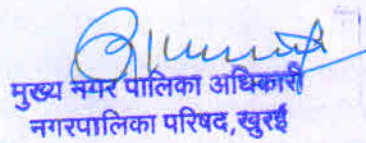 मुख्य नगर पालिका अधिकारी
नगरपालिका परिषद,खुरई